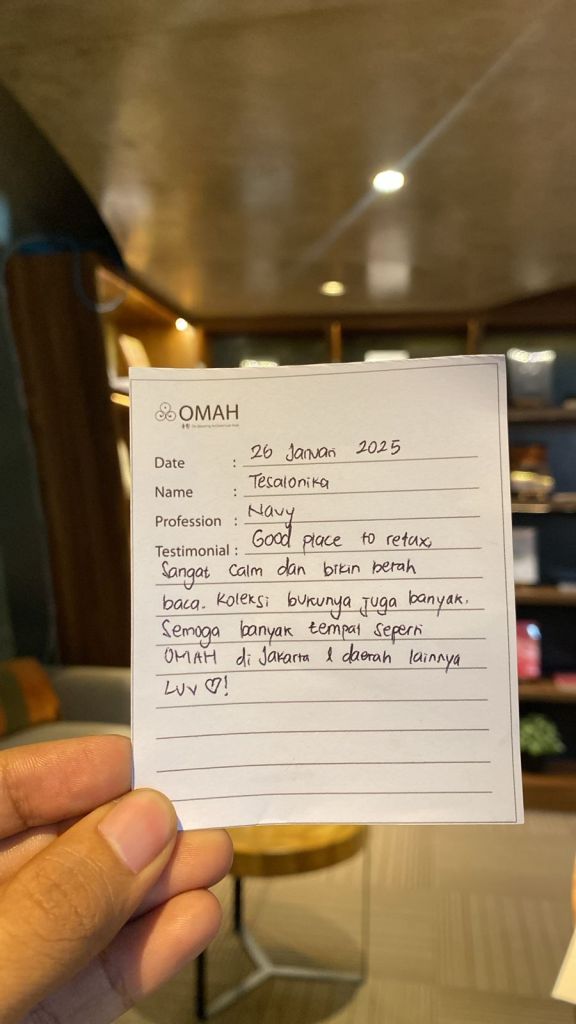 OMAH
Date : 26 Januari 2025
Name : Tesalonika
Profession : Navy
Testimonial : Good place to relax,
Sangat calm dan bikin betah
baca. Koleksi bukunya juga banyak.
Semoga banyak tempat seperti
OMAH di Jakarta & daerah lainnya
Luv ♡!